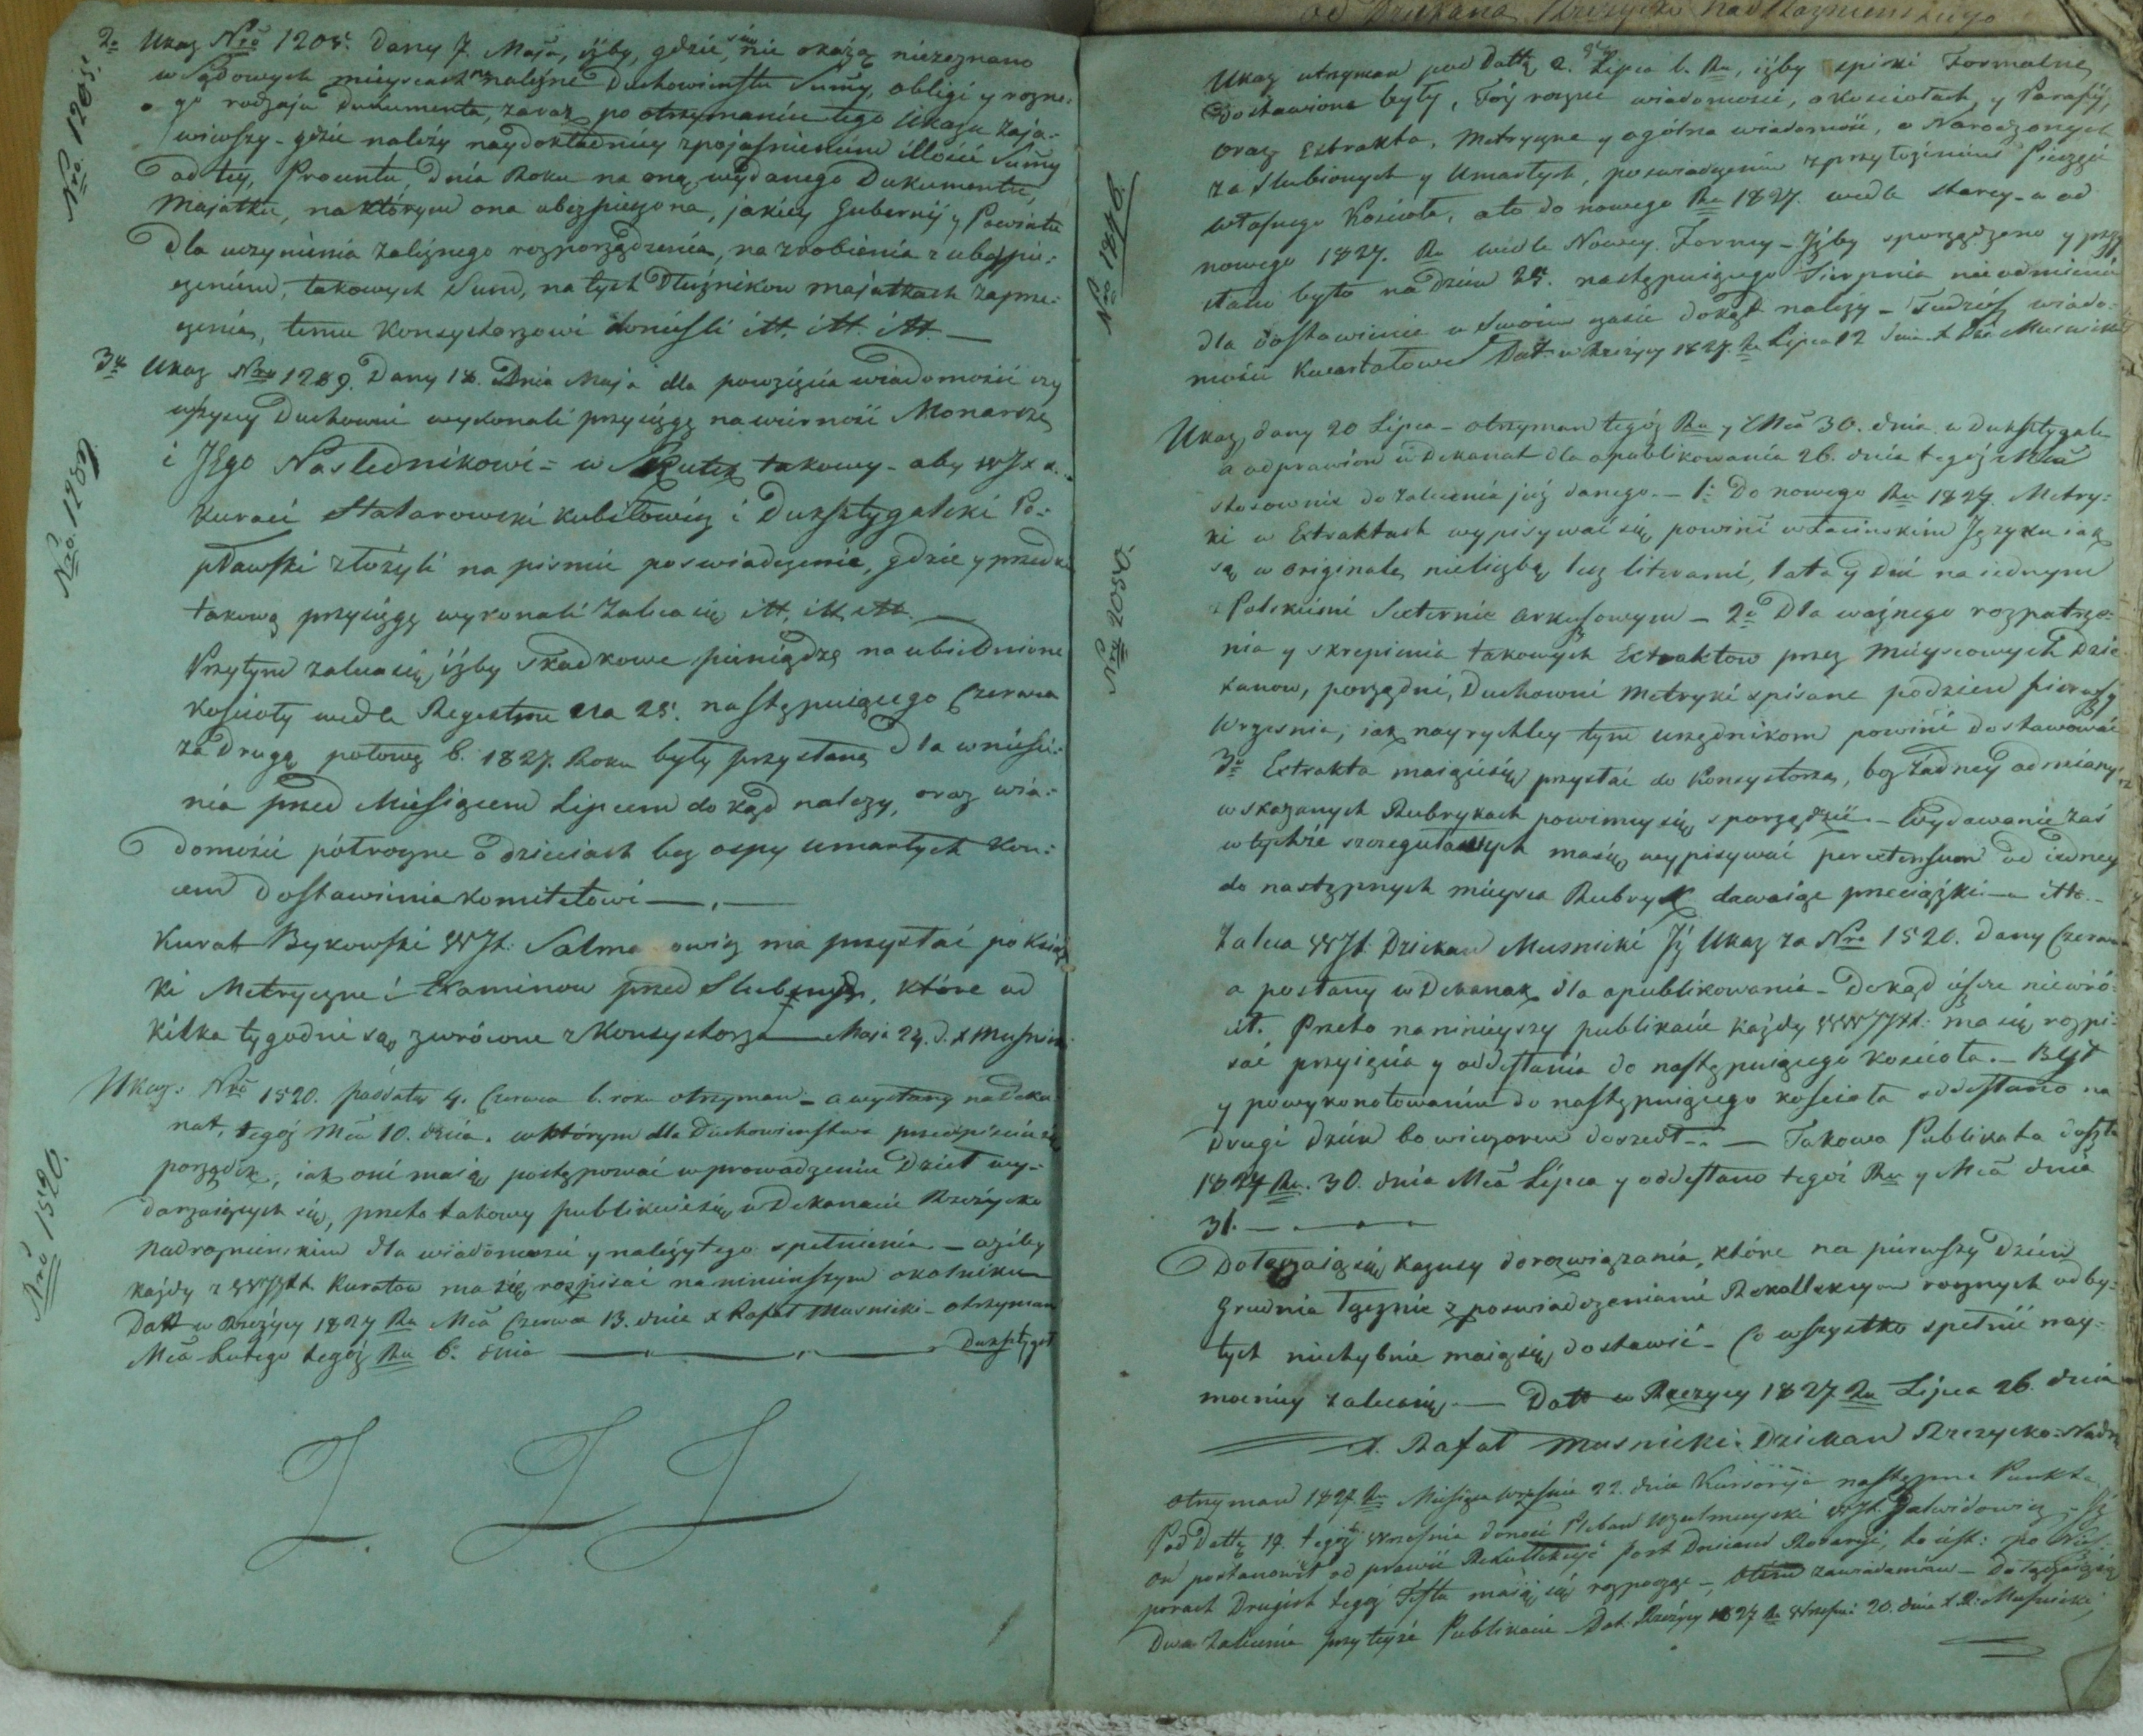 2o Ukaz Nro 1205. Dany 7. Maja, iżby, gdzie się nie okażą niezeznane
w Sądowych mieyscach na należne Duchowieństwu Summy, obligi y rozne-
go rodzaju dukumenta, zaraz po otrzymaniu tego Ukazu zaja-
wiwszy - gdzie należy naydokładniey z pojasnieniem illości Summy
od tey, Procentu, Dnia Roku na oną wydanego Dukumentu,
Majątku, na którym ona obezpieczona, jakiey Gubernij y Powiatu
Dla uczynienia należnego rozporządzenia, na zrobienia z ubezpie-
czeniem, takowych Summ, na tych Dłużnikow majątkach zaprze-
czenia, temu Konsystorzowi donieśli itt. itt. itt. —
Nro. 1205.
3o Ukaz Nro 1289. Dany 18. Dnia Maja dla powzięcia wiadomości czy
wszyscy Duchowni wykonali przysięgę na wierność Monarsze
i Jego Naslednikowi = w Skutek takowy - aby WJXX.
Kuraci Statarowski Kubiłowicz i Duksztygalski Po-
pławski złożyli na pismie poswiadczenie, gdzie y przed kim
takową przysięgę wykonali zaleca się itt. itt. itt.
Przytym zaleca się, iżby składkowe pieniądze na ubiednione
Kościoły wedle Regestru na 25. następuiącego Czerwca
za drugą połowę b. 1827. Roku były przysłane Dla wniesie-
nia przed Miesiącem Lipcem do kąd należy, oraz wia-
domości półroczne o dzieciach bez ospy umarłych kon-
cem dostawienia Komitetowi — . —
Nro. 1289.
Kurat Bykowski WJX. ma przysłać po Książ
ki Metryczne i Examinow przed Slubnych, które od
kilka tygodni są zwrócone z Konsystorza — Maja 24. d. X Musnicki
Ukaz: Nro 1520. pod datą 4. Czerwca b. roku otrzyman - a wysłany na Deka-
nat, tegoż Mca 10. dnia. w którym dla Duchowienstwa przepisuie się
porządek, iak oni maią postępować w prowadzeniu Dzieł wy-
darzaiących się, przeto takowy publikuie się w Dekanacie Rzeżycko
Nadroznienskim dla wiadomości y należytego spełnienia - ażeby
każdy z WWJXX. Kuratow ma się rozpisać na ninieyszym okolniku
Datt w Rzeżycy 1827 Ru Mca Czerwca 13. dnia X Rafał Musnicki - otrzyman
Mca Lutego tegoż Ru 6. dnia — Duksztygał
Nro 1520.
od Dziekana Rzeżycko Nadroznienskiego
Ukaz otrzyman pod Dattą 2. Lipca b. Ru, iżby spiski Formalne
Dostawione były, Toż roczne wiadomości, o Kosciołach, y Parafij,
oraz Extrakta, Metryczne y ogólna wiadomość, o Narodzonych
za slubionych y Umarłych, poswiadczeniem z przyłożeniem Pieczęci
własnego Kościoła, ato do nowego Ru 1827. wedle starey - a od
nowego 1827. Ru wedle Nowey Formy - Iżby sporządzono y przy
słane było na dzień 25. następuiącego Sierpnia nieodmiennie
dla dostawienia w Swoim czasie dokąd należy - Tudzież wiado-
mości Kwartałowe Datt w Rzeżycy 1827. Ru Lipca 12 dnia X Musnicki
Nro 1846.
Ukaz, dany 20 Lipca - otrzyman tegoż Ru y Mca 30. dnia w Duksztygale
a odprawion w Dekanat dla opublikowania 26. dnia tegoż Mca
stosownie do zalecenia już danego. — 1o Do nowego Ru 1827. Metry-
ki w Extraktach wypisywać się powinni w Łacinskim Języku iak
są w originale, nieliczbą lecz literami, lata y dni na iednym
Polskiemi Sexternie arkuszowym — 2o Dla ważnego rozpatrze-
nia y skrepienia takowych Extraktow przez Mieyscowych Dzie-
kanow, porządni, Duchowni Metryki spisane podzien pierwszy
Wrzesnia, iak nayrychley tym urzędnikom powinni dostawować
3o Extrakta maiąciesię przysłać do Konsystorza, bez żadney odmiany
wskazanych Rubrykach powinny się sporządzić. — Wydawanie zaś
w tychże szczegułowych maią wypisywać per extensum od iedney
do następnych mieysca Rubryk dawaiąc przeciążki — itt. —
Nro 2050.
Zaleca WJX. Dziekan Musnicki Iż Ukaz za Nro 1520. dany Czerwca
a posłany w Dekanat dla opublikowania - Dokąd iescze niewró-
cił. Przeto na ninieyszy publikacie każdy WWJJXX. ma się rozpi-
sać przyięcia y odesłania do następuiącego kościoła. — Był
y powykonotowaniu do następuiącego kościoła odesłano na
drugi dzień bo wieczorem doszedł - — Takowa Publikata doszła
1827 Ru. 30. dnia Mca Lipca y odesłano tegoż Ru y Mca dnia
31. —
Dołączaią się Kazusy do rozwiązania, które na pierwszy Dzień
Grudnia łącznie z poswiadczeniami Rekollekcyow rocznych odby-
tych niechybnie maią się dostawić - Co wszystko spełnić nay-
mocniey zaleca się. — Datt w Rzeżycy 1827 Ru Lipca 26. dnia
X. Rafał Musnicki Dziekan Rzeżycko-Nadro
Otrzyman 1827. Ru Miesiąca Wrzesnia 22. dnia Kursoryja następne Punkta
Pod Dattą 19. tegoż Wrzesnia donosi Pleban WJX. Dawidowicz - Iż
on postanowił od prawić Rekollekcyje post Dniami Rozaryi, to iest: po
porach Drugich tegoż Festa maią się rozpocząć -, otém zawiadamiam - Dołączaią się
Dwa zalecenia przy teyże Publikacie Dat. Rzeżycy 1827 Ru Wrzesnia 20. dnia X R: Musnicki